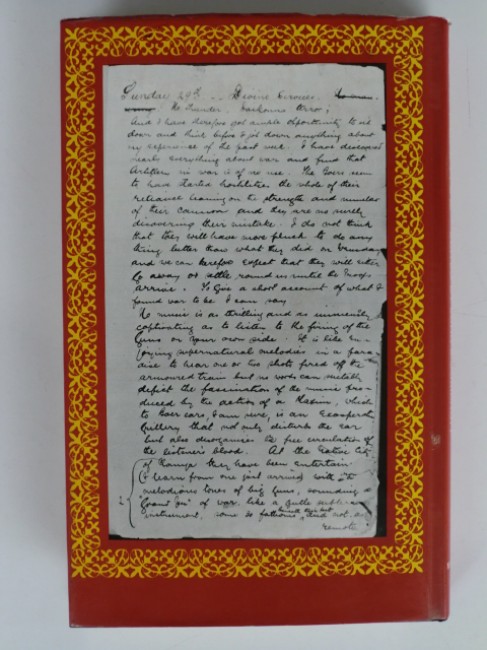 Sunday 29th .. Divine Services.
No thunder. Haikonna terror;
And I have therefore got ample opportunity to sit
down and think before I jot down anything about
my experience of the past week. I have discovered
nearly everything about war and find that
Artillery in war is of no use. The Boers seem
to have started hostilities the whole of their
reliance leaning on the strength and number
of their cannon and they are now surely
discovering their mistake. I do not think
that they will have more pluck to do any
thing better than what they did on
and we can therefore expect that they will either
go away or settle round us until the troops
arrive. To give a short account of what I
found war to be I can say
No music is as thrilling and as immensely
captivating as to listen to the firing of the
Guns on your own side. It is like en-
joying supernatural melodies in a para-
dise to hear one or two shots fired off the
armoured train but no words can suitably
depict the fascination of the music pro-
duced by the action of a Maxim, which
to Boer ears, I am sure, is an
that not only disturbs the ear
but also disorganises the free circulation of
the listener's blood. At the
of they have been entertain
I learn from one just arrived with the
melodious tones of big guns, sounding
of war, like a
instrument, some and not
remote